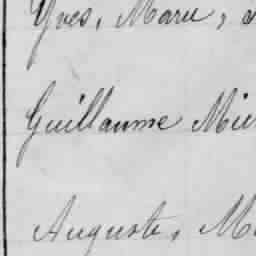 Yves, Marie,
Guillaume
Auguste,